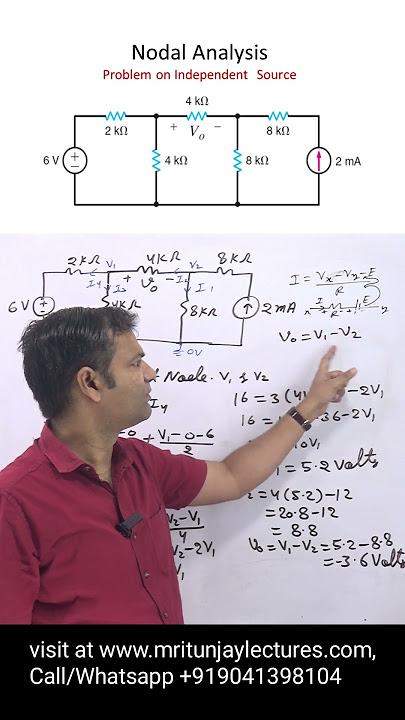 Nodal Analysis
Problem on Independent Source
4 kΩ
2 kΩ
+ Vo −
8 kΩ
6 V
+
−
4 kΩ
8 kΩ
2 mA
2KΩ V1 4KΩ V2 8KΩ
I4 I3 + Vo − I2 I1
6V
4KΩ
8KΩ
2mA
= 0V
I = Vx − Vy − E
R
x I R E y
Vo = V1 − V2
Node V1 & V2
I4
V1−0−6
2
V2−V1
4
V2−2V1
V1
−2V1
36−2V1
= 5.2 Volts
= 4(5.2)−12
= 20.8−12
= 8.8
Vo = V1−V2 = 5.2−8.8
= −3.6 Volts
visit at www.mritunjaylectures.com,
Call/Whatsapp +919041398104